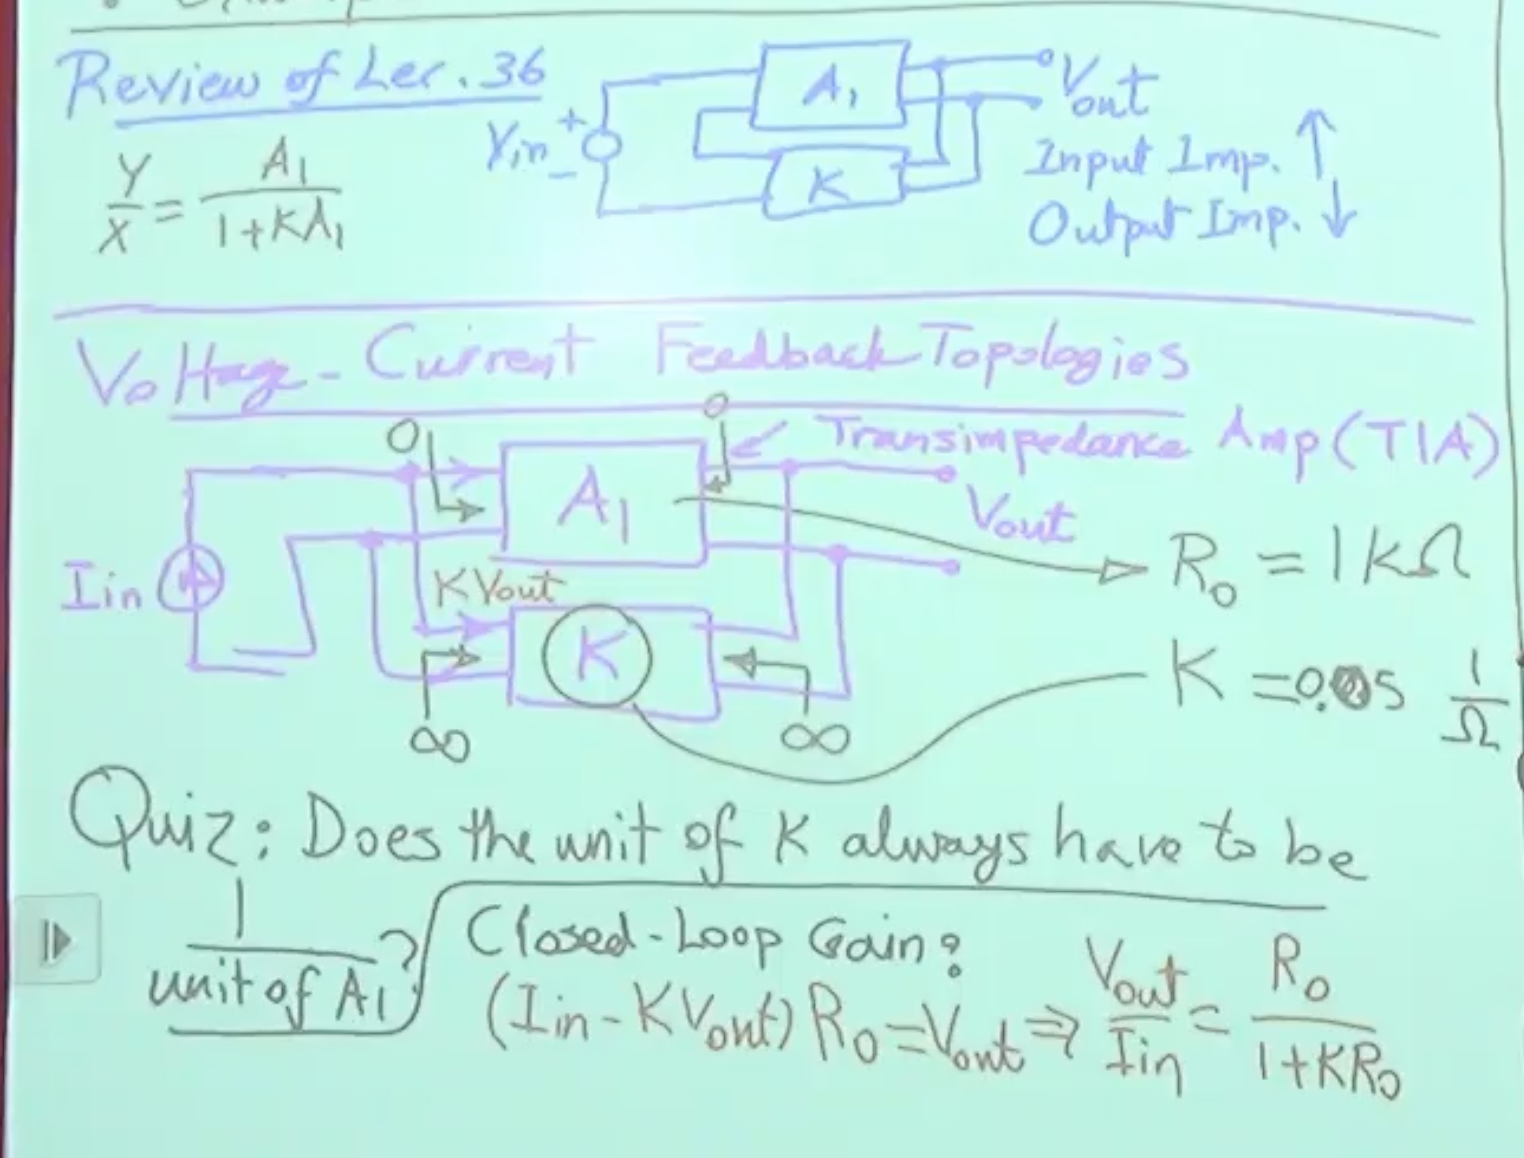 Review of Lec. 36
Y/X = A1/(1+KA1)
Vin + -
A1
K
Vout
Input Imp. ↑
Output Imp. ↓
Voltage-Current Feedback Topologies
0
0
Transimpedance Amp (TIA)
A1
Vout
Iin
KVout
K
∞
∞
R0 = 1kΩ
K = 0.05 1/Ω
Quiz: Does the unit of K always have to be
1/unit of A1?
Closed-Loop Gain?
(Iin - KVout) R0 = Vout ⇒ Vout/Iin = R0/(1+KR0)